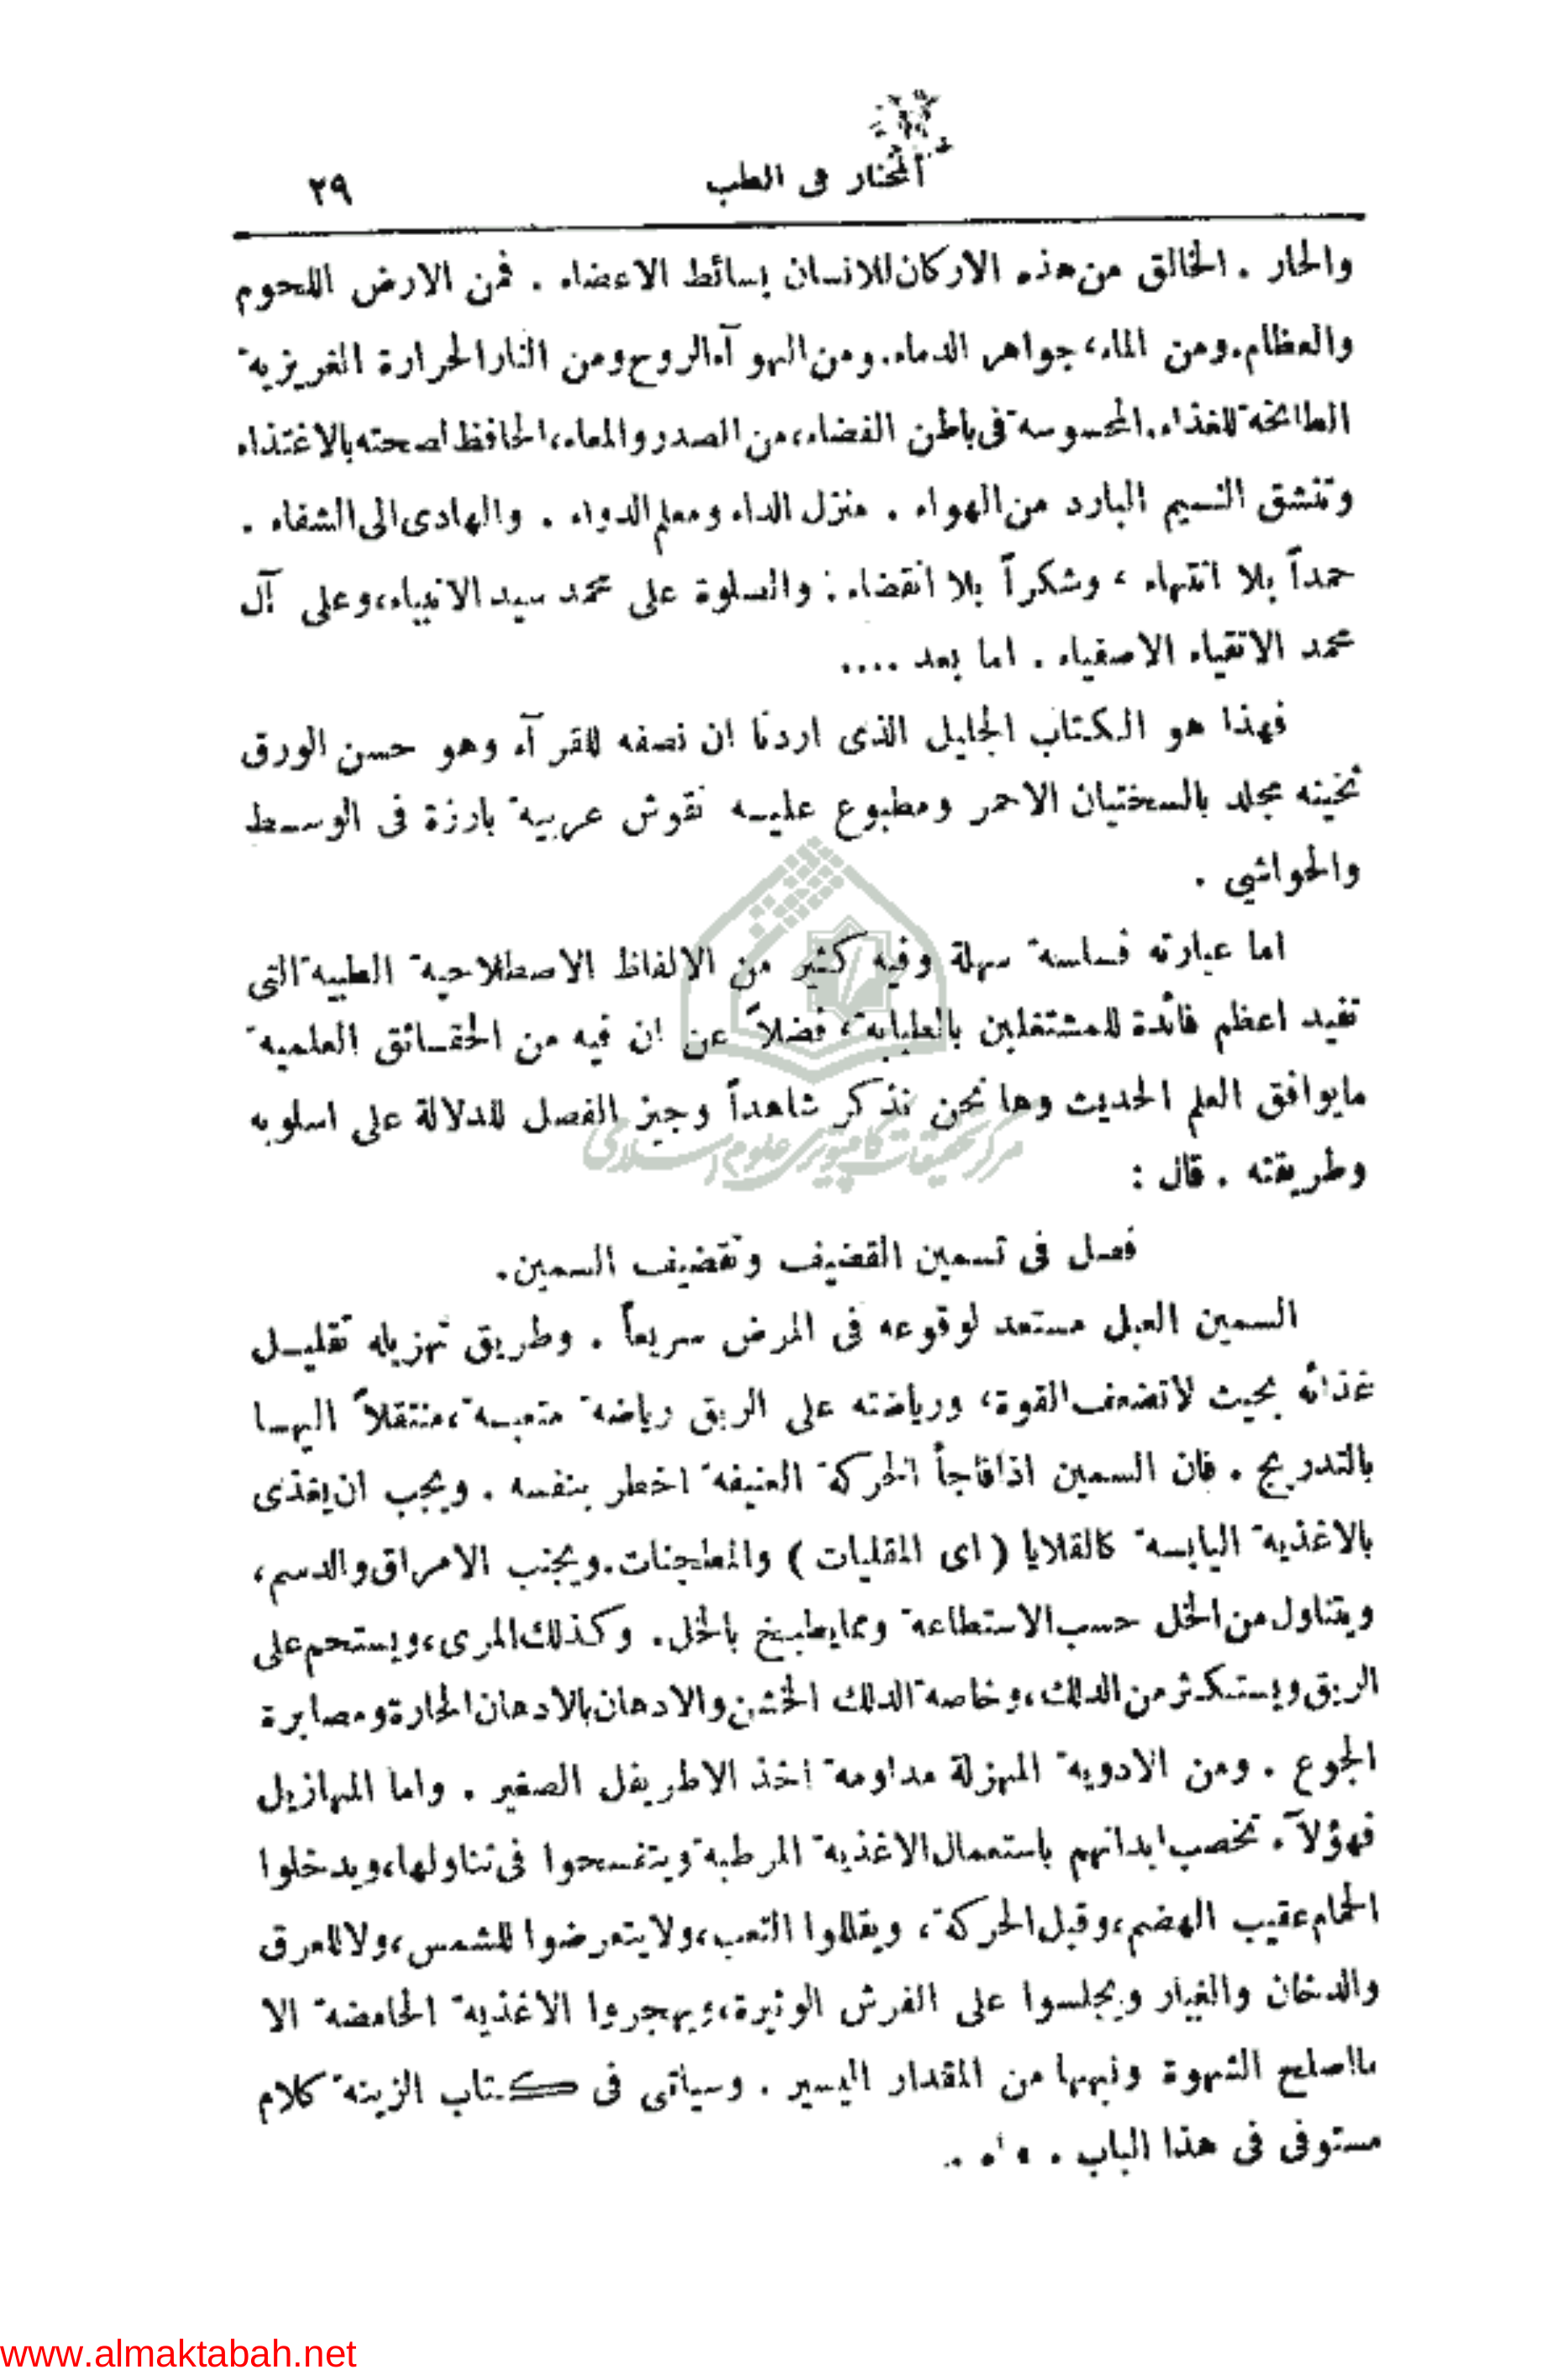 المختار في الطب ٢٩
والحار . الخالق من هذه الاركان للانسان بسائط الاعضاء . فمن الارض اللحوم
والعظام.ومن الماء، جواهر الدماء.ومن الهوآء الروح ومن النار الحرارة الغريزية
الطابخة للغذاء.المحسوسة فى باطن الفضاء،من الصدر والمعاء،الحافظ لصحته بالاغتذاء
وتنشق النسيم البارد من الهواء . منزل الداء ومعلم الدواء . والهادى الى الشفاء .
حمداً بلا انتهاء ، وشكراً بلا انقضاء . والصلوة على محمد سيد الانبياء،وعلى آل
محمد الاتقياء الاصفياء . اما بعد ....
فهذا هو الكتاب الجليل الذى اردنا ان نصفه للقرآء وهو حسن الورق
ثخينه مجلد بالسختيان الاحمر ومطبوع عليه نقوش عربية بارزة فى الوسط
والحواشي .
اما عبارته فسلسة سهلة وفيه كثير من الالفاظ الاصطلاحية الطبية التى
تفيد اعظم فائدة للمشتغلين بالطبابة، فضلاً عن ان فيه من الحقائق العلمية
مايوافق العلم الحديث وها نحن نذكر شاهداً وجيز الفصل للدلالة على اسلوبه
مركز تحقيقات كامپيوترى علوم اسلامى
وطريقته . قال :
فصل فى تسمين القضيف وتقضيف السمين.
السمين العبل مستعد لوقوعه فى المرض سريعاً . وطريق تهزيله تقليل
غذائه بحيث لاتضعف القوة، ورياضته على الريق رياضة متعبة،منتقلاً اليها
بالتدريج . فان السمين اذا فاجأ الحركة العنيفة اخطر بنفسه . ويجب ان يغذى
بالاغذية اليابسة كالقلايا ( اى المقليات ) والمطجنات.ويجنب الامراق والدسم،
ويتناول من الخل حسب الاستطاعة ومما يطبخ بالخل . وكذلك المرى،ويستحم على
الريق ويستكثر من الدلك،وخاصة الدلك الخشن والادهان بالادهان الحارة ومصابرة
الجوع . ومن الادوية المهزلة مداومة اخذ الاطريفل الصغير . واما المهازيل
فهؤلآء تخصب ابدانهم باستعمال الاغذية المرطبة ويتفسحوا فى تناولها،ويدخلوا
الحمام عقيب الهضم،وقبل الحركة، ويقللوا التعب،ولايتعرضوا للشمس،ولا للعرق
والدخان والغبار ويجلسوا على الفرش الوثيرة،ويهجروا الاغذية الحامضة الا
ما اصلح الشهوة ونبهها من المقدار اليسير . وسياتى فى كتاب الزينة كلام
مستوفى فى هذا الباب . . . .
www.almaktabah.net